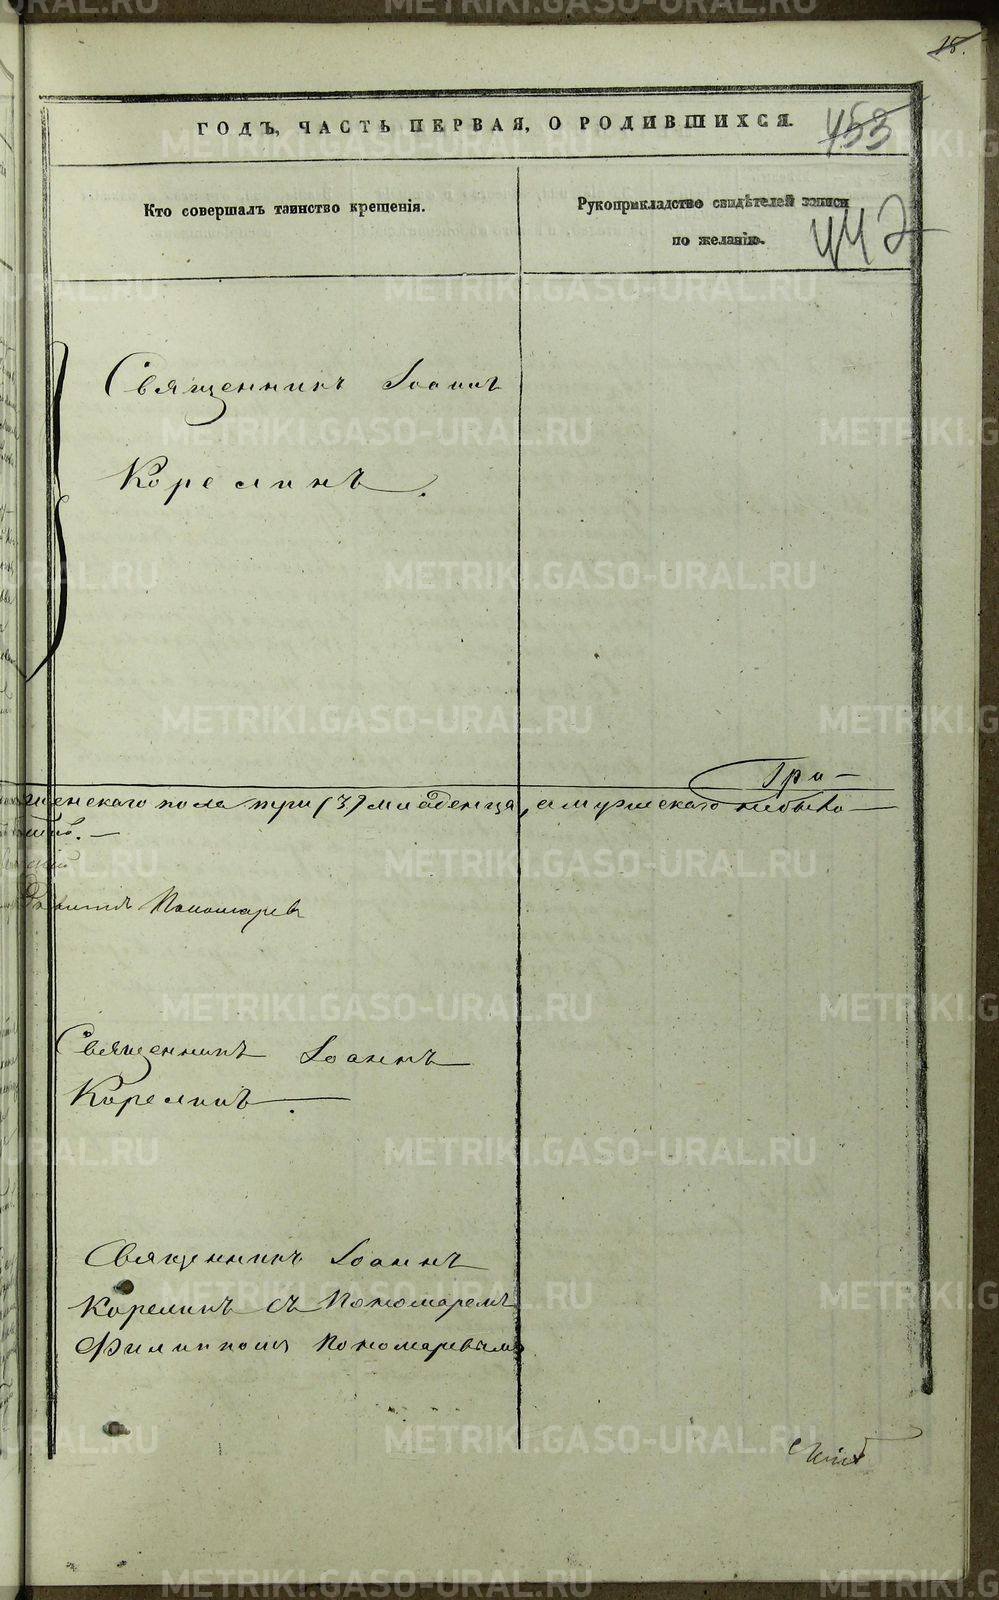 18.
ГОДЪ, ЧАСТЬ ПЕРВАЯ, О РОДИВШИХСЯ.
453
Кто совершалъ таинство крещенія.
Рукоприкладство свидѣтелей записи
по желанію.
442
Священникъ Іоаннъ
Корелинъ.
женскаго пола три (3) младенца, а мужескаго небыло
Пономаревъ
Священникъ Іоаннъ
Корелинъ.
Священникъ Іоаннъ
Корелинъ съ Пономаремъ
Филиппомъ Пономаревымъ
METRIKI.GASO-URAL.RU